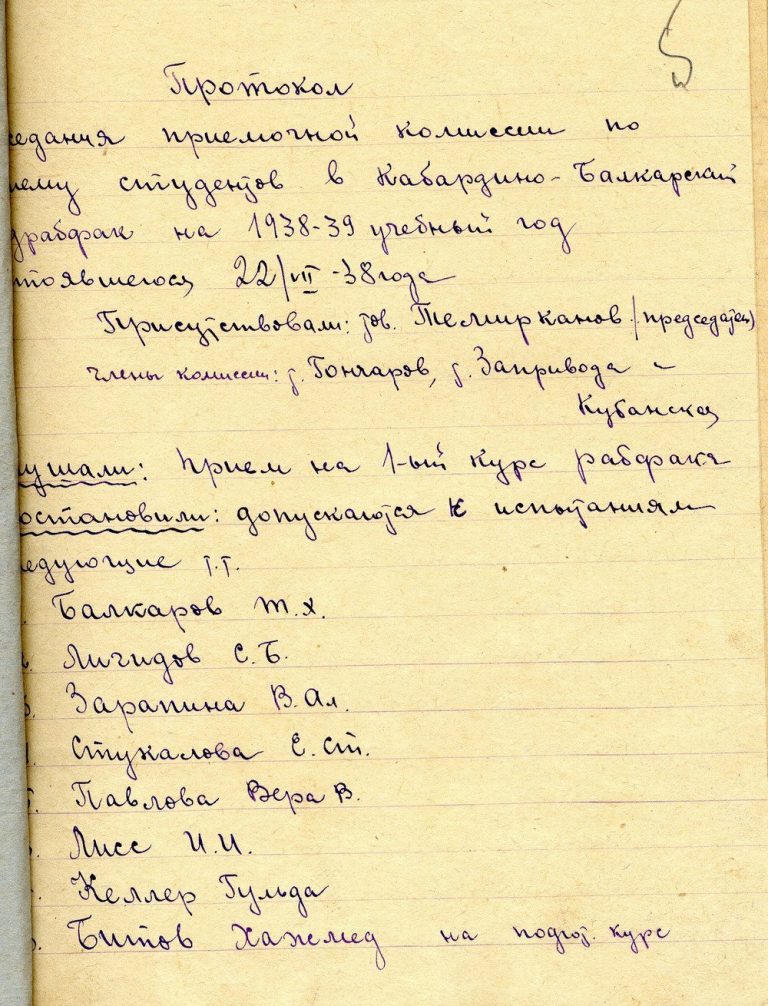 5
Протокол
седания приемочной комиссии по
ему студентов в Кабардино-Балкарский
драбфак на 1938-39 учебный год
тоявшегося 22/VII-38 года
Присутствовали: тов. Темирканов /председатель/
члены комиссии: т. Гончаров, т. Запривода -
Кубанская
ушали: Прием на 1-ый курс рабфака
остановили: допускаются к испытаниям
едующие т.т.
Балкаров Т.Х.
Личидов С.Б.
Зарапина В.Ал.
Стукалова Е.Ст.
Павлова Вера В.
Лисс И.И.
Келлер Гульда
Битов Хажмед на подгот. курс